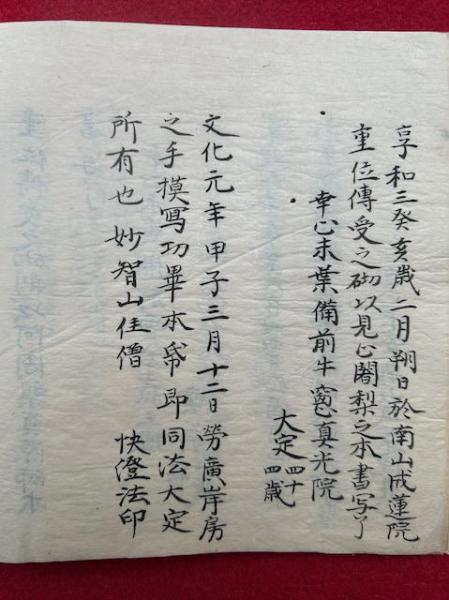 享和三癸亥歳二月朔日於南山成蓮院
重位傳受之砌以見心闍梨之本書写了
幸心末葉備前牛窓真光院
大定四十四歳
文化元年甲子三月十二日勞廣岸房
之手摸寫功畢本帋即同法大定
所有也 妙智山住僧 快澄法印